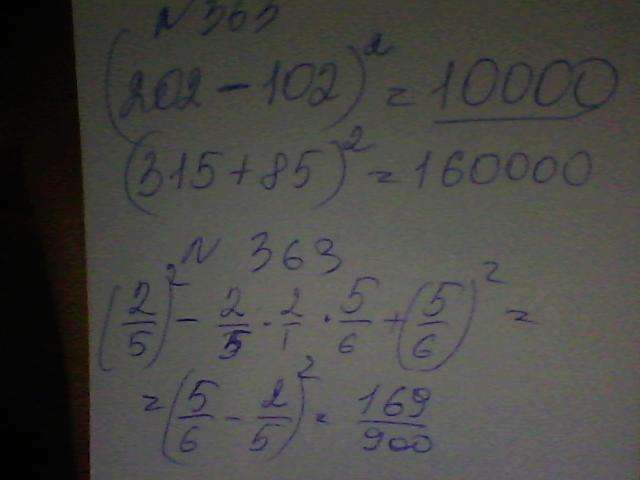 N 363
(202 - 102)² = 10000
(315 + 85)² = 160000
N 363
(2/5)² - 2/5 · 2/1 · 5/6 + (5/6)² =
= (5/6 - 2/5)² = 169/900